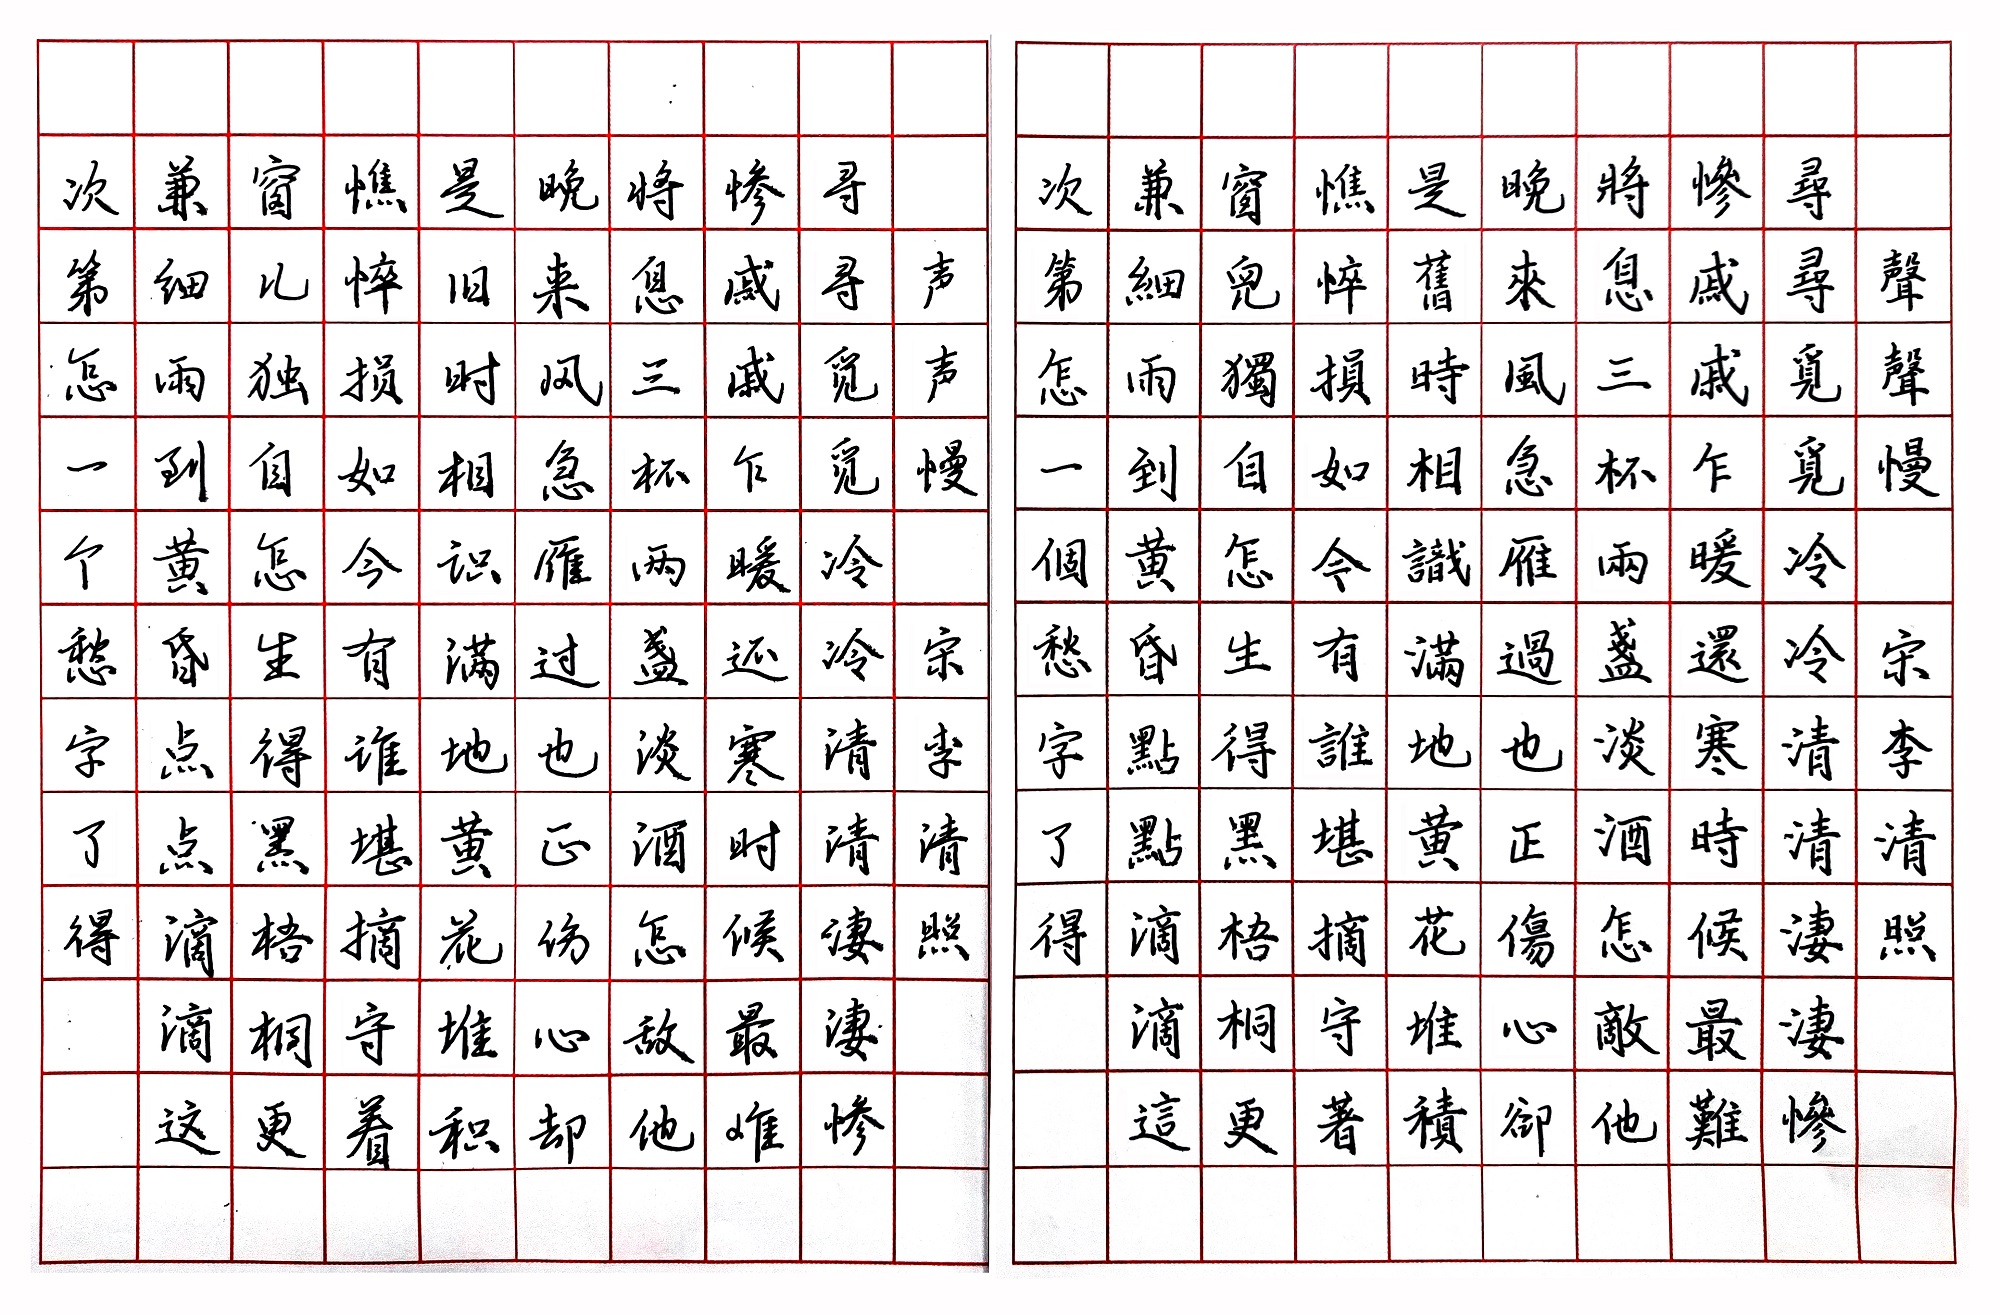 聲聲慢 宋李清照
尋尋覓覓冷冷清清淒淒慘
慘戚戚乍暖還寒時候最難
將息三杯兩盞淡酒怎敵他
晚來風急雁過也正傷心卻
是舊時相識滿地黄花堆積
憔悴損如今有誰堪摘守著
窗兒獨自怎生得黑梧桐更
兼細雨到黄昏點點滴滴這
次第怎一個愁字了得
声声慢 宋李清照
寻寻觅觅冷冷清清淒淒惨
惨戚戚乍暖还寒时候最难
将息三杯两盏淡酒怎敌他
晚来风急雁过也正伤心却
是旧时相识满地黄花堆积
憔悴损如今有谁堪摘守着
窗儿独自怎生得黑梧桐更
兼细雨到黄昏点点滴滴这
次第怎一个愁字了得